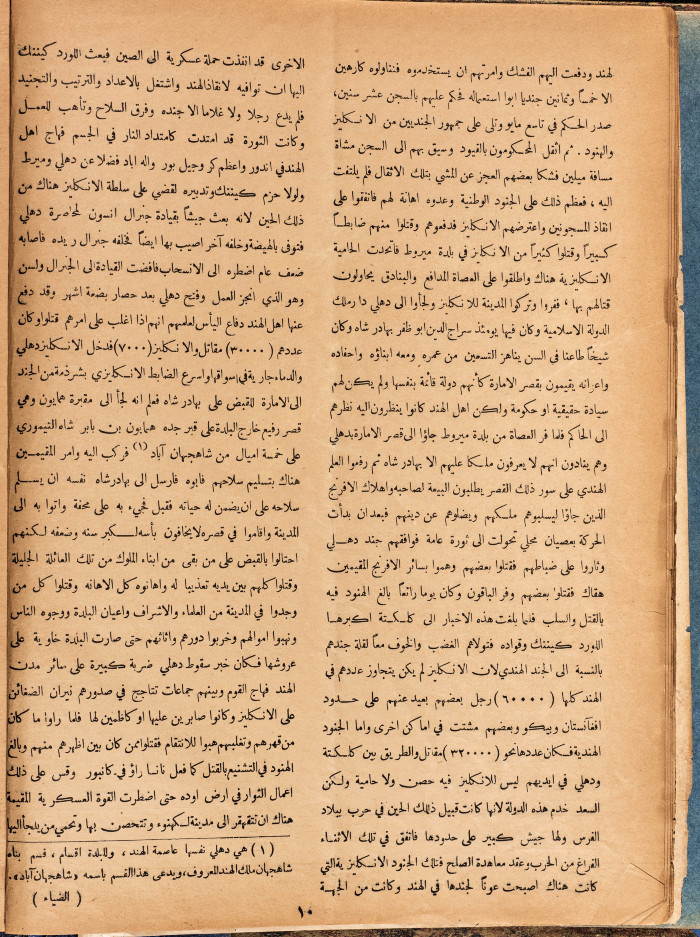 لهند ودفعت اليهم الفشك وامرتهم ان يستخدموه فتناولوه كارهين
الا خمساً وثمانين جنديا ابوا استعماله فحكم عليهم بالسجن عشر سنين،
صدر الحكم في تاسع مايو وتلى على جمهور الجنديين من الانكليز
والهنود . ثم اثقل المحكومون بالقيود وسيق بهم الى السجن مشاة
مسافة ميلين فشكا بعضهم العجز عن المشي بتلك الاثقال فلم يلتفت
اليه ، فعظم ذلك على الجنود الوطنية وعدوه اهانة لهم فاتفقوا على
انقاذ المسجونين واعترضهم الانكليز فدفعوهم وقتلوا منهم ضابطاً
كبيراً وقتلوا كثيراً من الانكليز في بلدة ميروط فاتحدت الحامية
الانكليزية هناك واطلقوا على العصاة المدافع والبنادق يحاولون
قتالهم بها ، ففروا وتركوا المدينة للانكليز ولجأوا الى دهلي دار ملك
الدولة الاسلامية وكان فيها يومئذ سراج الدين ابو ظفر بهادر شاه وكان
شيخاً طاعنا في السن يناهز التسعين من عمره ومعه ابناؤه واحفاده
واعوانه يقيمون بقصر الامارة كأنهم دولة قائمة بنفسها ولم يكن لهم
سيادة حقيقية او حكومة ولكن اهل الهند كانوا ينظرون اليه نظرهم
الى الحاكم فلما فر العصاة من بلدة ميروط جاؤا الى قصر الامارة بدهلي
وهم ينادون انهم لا يعرفون ملكا عليهم الا بهادر شاه ثم رفعوا العلم
الهندي على سور ذلك القصر يطلبون البيعة لصاحبه واهلاك الافرنج
الذين جاؤا ليسلبوهم ملكهم ويضلوهم عن دينهم فبعد ان بدأت
الحركة بعصيان محلي تحولت الى ثورة عامة فوافقهم جند دهلي
وثاروا على ضباطهم فقتلوا بعضهم وهموا بسائر الافرنج المقيمين
هناك فقتلوا بعضهم وفر الباقون وكان يوما رائعاً بالغ الهنود فيه
بالقتل والسلب فلما بلغت هذه الاخبار الى كلكتة اكبرها
اللورد كيننك وقواده فتولاهم الغضب والخوف معاً لقلة جندهم
بالنسبة الى الجند الهندي لان الانكليز لم يكن يتجاوز عددهم في
الهند كلها (٦٠٠٠٠) رجل بعضهم بعيد عنهم على حدود
افغانستان وبيكو وبعضهم مشتت في اماكن اخرى واما الجنود
الهندية فكان عددها نحو (٣٢٠٠٠٠) مقاتل والطريق بين كلكتة
ودهلي في ايديهم ليس للانكليز فيه حصن ولا حامية ولكن
السعد خدم هذه الدولة لانها كانت قبيل ذلك الحين في حرب ببلاد
الفرس ولها جيش كبير على حدودها فاتفق في تلك الاثناء
الفراغ من الحرب وعقد معاهدة الصلح فتلك الجنود الانكليزية التي
كانت هناك اصبحت عوناً لجندها في الهند وكانت من الجهة
الاخرى قد انفذت حملة عسكرية الى الصين فبعث اللورد كيننك
اليها ان توافيه لانقاذ الهند واشتغل بالاعداد والترتيب والتجنيد
فلم يدع رجلا ولا غلاما الا جنده وفرق السلاح وتأهب للعمل
وكانت الثورة قد امتدت كامتداد النار في الجسم فهاج اهل
الهند في اندور واعظم كر وجبل بور واله اباد فضلا عن دهلي وميرط
ولولا حزم كيننك وتدبيره لقضي على سلطة الانكليز هناك من
ذلك الحين لانه بعث جيشاً بقيادة جنرال انسون لمحاصرة دهلي
فتوفى بالهيضة وخلفه آخر اصيب بها ايضاً فخلفه جنرال ريده فاصابه
ضعف عام اضطره الى الانسحاب فافضت القيادة الى الجنرال ولسن
وهو الذي انجز العمل وفتح دهلي بعد حصار بضعة اشهر وقد دفع
عنها اهل الهند دفاع اليأس لعلمهم انهم اذا اغلب على امرهم قتلوا وكان
عددهم (٣٠٠٠٠) مقاتل والانكليز (٧٠٠٠) فدخل الانكليز دهلي
والدماء جارية في اسواقها واسرع الضابط الانكليزي بشرذمة من الجند
الى الامارة للقبض على بهادر شاه فعلم انه لجأ الى مقبرة همايون وهي
قصر رفيع خارج البلدة على قبر جده همايون بن بابر شاه التيموري
على خمسة اميال من شاهجهان آباد (١) فركب اليه وامر المقيمين
هناك بتسليم سلاحهم فابوه فارسل الى بهادر شاه نفسه ان يسلم
سلاحه على ان يضمن له حياته فقبل فجيء به على محفة واتوا به الى
المدينة واقاموا في قصره لا يخافون بأسه لكبر سنه وضعفه لكنهم
احتالوا بالقبض على من بقى من ابناء الملوك من تلك العائلة الجليلة
وقتلوا كلهم بين يديه تعذيبا له واهانوه كل الاهانه وقتلوا كل من
وجدوا في المدينة من العلماء والاشراف واعيان البلدة ووجوه الناس
ونهبوا اموالهم وخربوا دورهم واثاثهم حتى صارت البلدة خاوية على
عروشها فكان خبر سقوط دهلي ضربة كبيرة على سائر مدن
الهند فهاج القوم وبينهم جماعات تتاجج في صدورهم نيران الضغائن
على الانكليز وكانوا صابرين عليها او كاظمين لها فلما راوا ما كان
من قهرهم وتغلبهم هبوا للانتقام فقتلوا ممن كان بين اظهرهم منهم وبالغ
الهنود في التشنيع بالقتل كما فعل نانا راؤ في كانبور وقس على ذلك
اعمال الثوار في ارض اوده حتى اضطرت القوة العسكرية المقيمة
هناك ان تتقهقر الى مدينة لكهنوء وتتحصن بها وتحمي من يلجأ اليها
(١) هي دهلي نفسها عاصمة الهند ، وللبلدة اقسام ، قسم بناه
شاهجهان ملك الهند المعروف ، ويدعى هذا القسم باسمه « شاهجهان آباد » .
( الضياء )
١٠